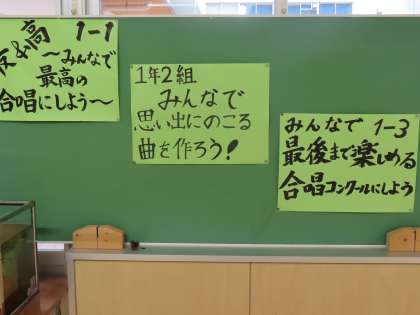 &高 1-1
〜みんなで
最高の
合唱にしよう〜
1年2組
みんなで
思い出にのこる
曲を作ろう!
みんなで 1-3
最後まで楽しめる
合唱コンクールにしよう